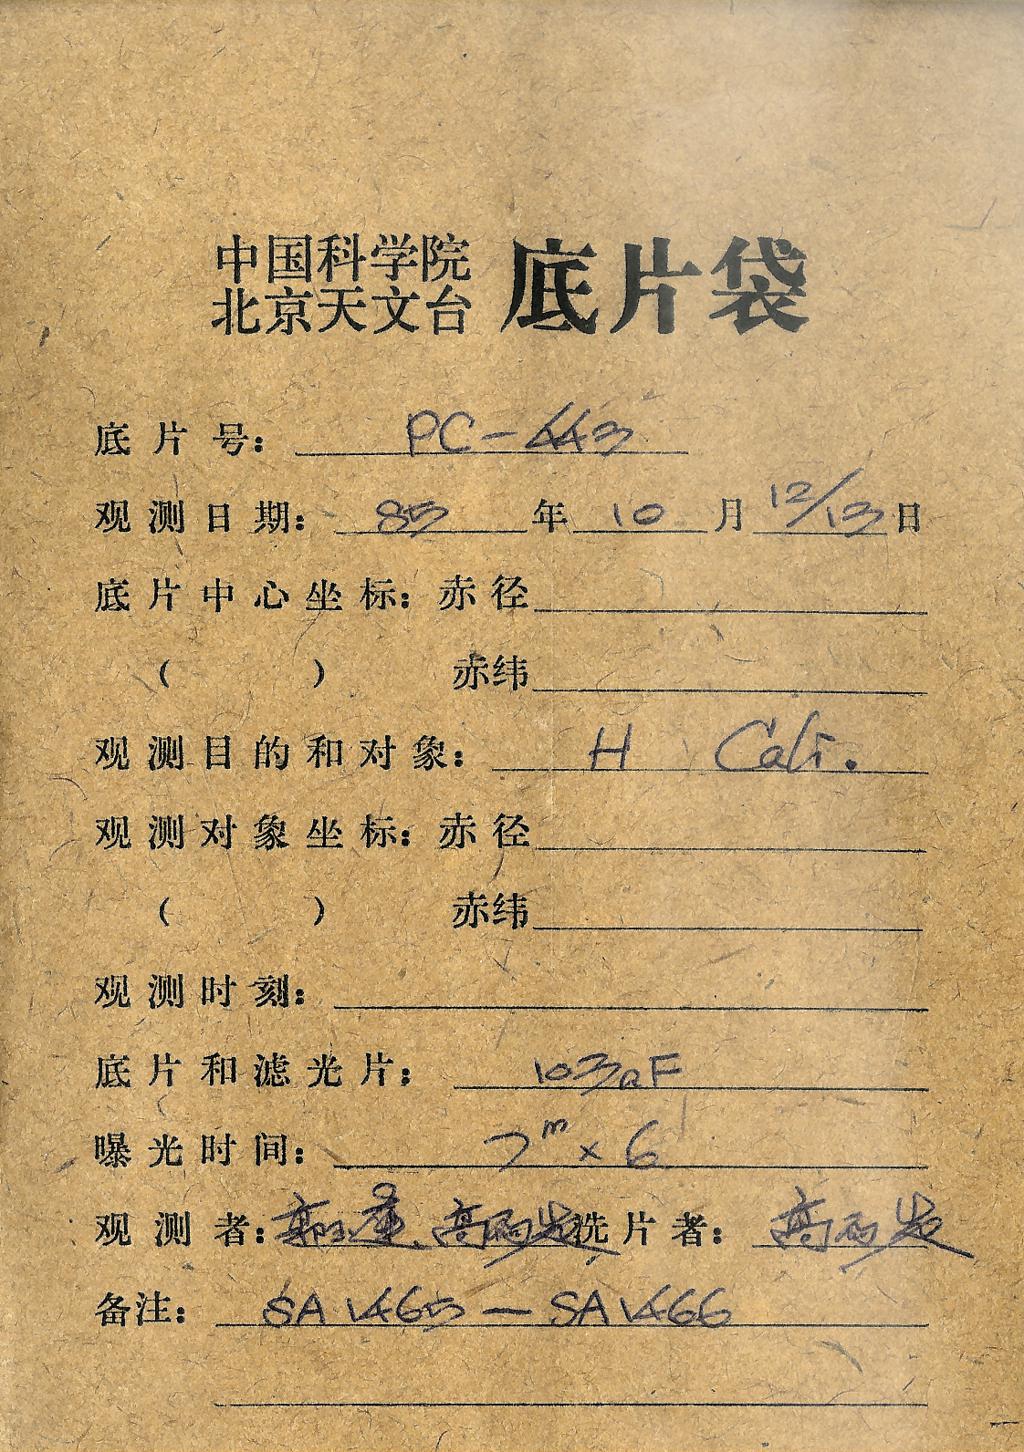 中国科学院
北京天文台 底片袋
底片号: PC-443
观测日期: 85 年 10 月 12/13 日
底片中心坐标: 赤径
( ) 赤纬
观测目的和对象: H Cali.
观测对象坐标: 赤径
( ) 赤纬
观测时刻:
底片和滤光片: 103aF
曝光时间: 7m × 6
观测者: 洗片者:
备注: SA 1465 — SA 1466